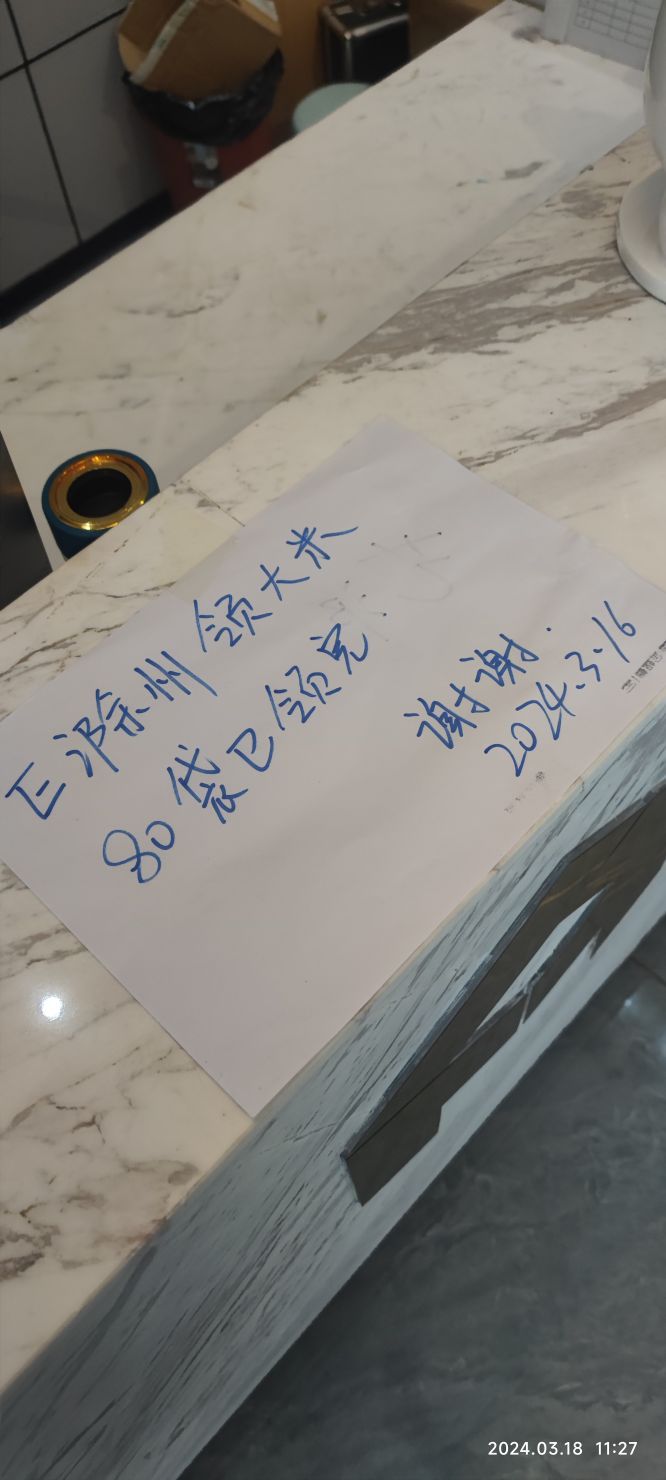 E滁州领大米
80袋已领完.
谢谢.
2024.3.16
2024.03.18 11:27